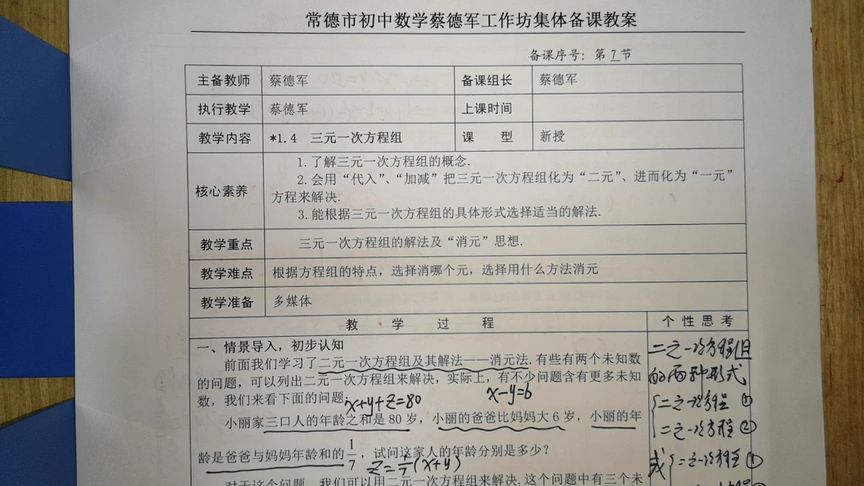 常德市初中数学蔡德军工作坊集体备课教案
备课序号：第 7 节
主备教师 蔡德军 备课组长 蔡德军
执行教学 蔡德军 上课时间
教学内容 *1.4 三元一次方程组 课 型 新授
核心素养
1.了解三元一次方程组的概念.
2.会用“代入”、“加减”把三元一次方程组化为“二元”、进而化为“一元”
方程来解决.
3.能根据三元一次方程组的具体形式选择适当的解法.
教学重点 三元一次方程组的解法及“消元”思想.
教学难点 根据方程组的特点，选择消哪个元，选择用什么方法消元
教学准备 多媒体
教 学 过 程 个 性 思 考
一、情景导入，初步认知
前面我们学习了二元一次方程组及其解法——消元法.有些有两个未知数
的问题，可以列出二元一次方程组来解决，实际上，有不少问题含有更多未知
数，我们来看下面的问题.
x+y+z=80 x-y=6
小丽家三口人的年龄之和是 80 岁，小丽的爸爸比妈妈大 6 岁，小丽的年
龄是爸爸与妈妈年龄和的 1/7，试问这家人的年龄分别是多少？
z=1/7(x+y)
对于这个问题，我们可以用二元一次方程组来解决.这个问题中有三个未
二元一次方程组
的两种形式
{二元一次方程 ①
二元一次方程 ②
或{二元一次方程 ①